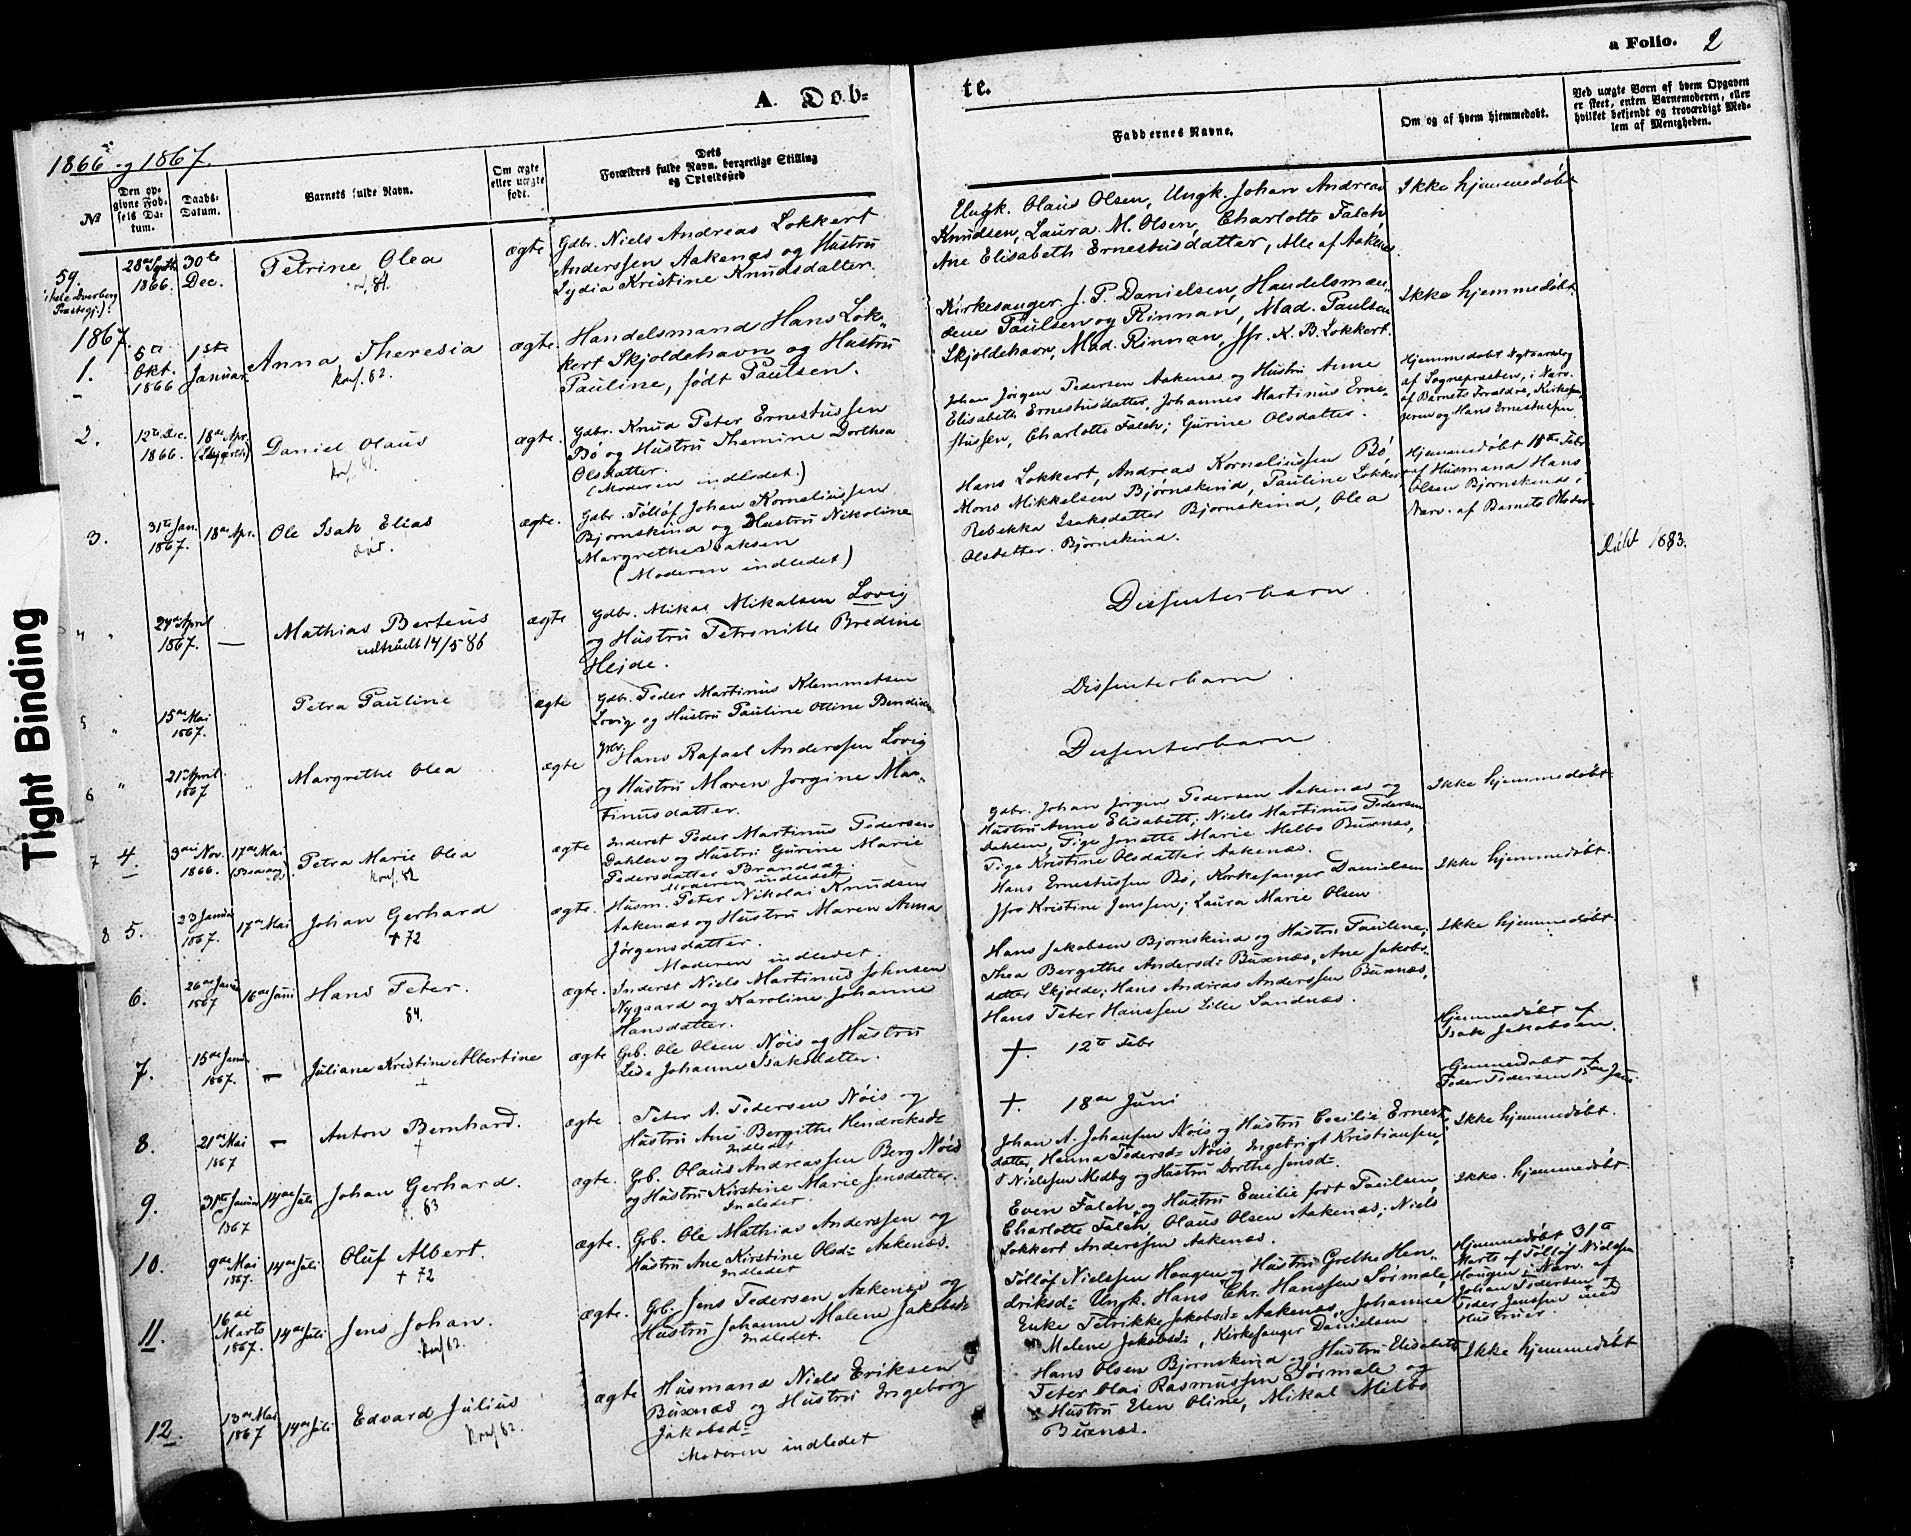 a Folio. 2
A. Døb=
te.
1866 og 1867.
№
Den op-
givne Fød-
sels Da-
tum.
Daabs-
Datum.
Barnets fulde Navn.
Om ægte
eller uægte
født.
Dets
Forældres fulde Navn, borgerlige Stilling
og Opholdssted
Faddernes Navne.
Om og af hvem hjemmedøbt.
Ved uægte Børn af hvem Opgaven
er skeet, enten Barnemoderen, eller
hvilket bekjendt og troværdigt Med-
lem af Menigheden.
59.
(hele Dverberg
Præstegj.):
28de Septb.
1866.
30te
Dec.
Petrine Olea
81.
ægte
Gdbr. Niels Andreas Lokkert
Anderssen Aakenæs og Hustru
Lydia Kristine Knudsdatter.
Ungk. Olaus Olsen, Ungk. Johan Andreas
Knudsen, Laura M. Olsen, Charlotte Falch
Ane Elisabeth Ernestusdatter, Alle af Aakenæs
Ikke hjemmedøbt
1867.
1.
5te
Okt.
1866
1ste
Januar.
Anna Theresia
konf. 82.
ægte.
Handelsmand Hans Lok-
kert Skjoldehavn og Hustru
Pauline, født Paulsen.
Kirkesanger J. P. Danielsen, Handelsmæn-
dene Paulsen og Rinnan, Mad. Paulsen
Skjoldehavn, Mad. Rinnan, Jfr. K. B. Lokkert.
Ikke hjemmedøbt.
2.
12te Dec.
1866.
18de Apr.
Daniel Olaus
konf. 81.
ægte.
Gdbr. Knud Peter Ernestussen
Bø og Hustru Themine Dorthea
Olsdatter.
(Moderen indledet.)
Johan Jørgen Pedersen Aakenæs og Hustru Anne
Elisabeth Ernestusdatter, Johannes Martinus Erne-
stussen, Charlotte Falch; Gurine Olsdatter.
Hjemmedøbt Nytaarsdag
af Sognepræsten, i Nærv.
af Barnets Forældre, Kirkesan-
geren og Hans Ernestussen
3.
31te Jan.
1867.
18de Apr.
Ole Isak Elias
død.
ægte.
Gdbr. Tølløf Johan Korneliussen
Bjørnskind og Hustru Nikoline
Margrethe Isaksen
(Moderen indledet)
Hans Lokkert, Andreas Korneliussen Bø,
Mons Mikkelsen Bjørnskind, Pauline Lokkert
Rebekka Isaksdatter Bjørnskind, Olea
Olsdatter Bjørnskind.
Hjemmedøbt 18de Febr
af Husmand Hans
Olsen Bjørnskind i
Nærv. af Barnets Moder
Døbt 1883.
24de April
1867.
—
Mathias Berteus
udtraadt 14/5 86
ægte
Gdbr. Mikal Mikalsen Lovig
og Hustru Petronille Bredine
Hejde.
Dissenterbarn
5
15de Mai
1867.
Petra Pauline
ægte
Gdbr. Peder Martinus Klemmetsen
Lovig og Hustru Pauline Oline Bendiks
Dissenterbarn
6
21de April
1867
Margrethe Olea
ægte
Gdbr. Hans Rafael Anderssen Lovig
og Hustru Maren Jørgine Mar-
tinusdatter.
Dissenterbarn
7 4.
3die Nov.
1866.
17de Mai
Petra Marie Olea
konf. 82
ægte
Inderst Peder Martinus Pedersen
Dahlen og Hustru Gurine Marie
Pedersdatter Brandsag.
Moderen indledet
Gdbr. Johan Jørgen Pedersen Aakenæs og
Hustru Anne Elisabeth; Niels Martinus Pedersen
Dahlen, Pige Jonette Marie Melbo Buxnæs,
Pige Kristine Olsdatter Aakenæs.
Ikke hjemmedøbt.
8 5.
23 Januar
1867.
17de Mai
Johan Gerhard
+ 72
ægte.
Husm. Peter Nikolai Knudsen
Aakenæs og Hustru Maren Anna
Jørgensdatter.
Moderen indledet.
Hans Ernestussen Bø, Kirkesanger Danielsen
Jfr Kristine Jenssen; Laura Marie Olsen
Ikke hjemmedøbt.
6.
26de Januar
1867
16de Juni
Hans Peter.
84.
ægte.
Inderst Niels Martinus Johnsen
Nygaard og Karoline Johanne
Hansdatter.
Hans Jakobsen Bjørnskind og Hustru Pauline,
Thea Bergithe Andersd= Buxnæs, Ane Jakobs-
datter Skjolde; Hans Andreas Anderssen Buxnæs,
Hans Peter Hanssen Lille Sandnæs.
Ikke hjemmedøbt
7.
15de Januar
1867.
—
Juliane Kristine Albertine
+
ægte
Grb. Ole Olsen Nøis og Hustru
Lise Johanne Isaksdatter.
+. 12te Febr
Hjemmedøbt af
Isak Jakobsen.
8.
21de Mai
1867
—
Anton Bernhard.
+
ægte
Peter A. Pedersen Nøis og
Hustru Ane Bergithe Hendriksd=
Indledet
+. 18de Juni
Hjemmedøbt af
Peder Pedersen 15de Juni
9.
31te Januar
1867
14de Juli
Johan Gerhard.
83
ægte.
Grb. Olaus Andreassen Berg Nøis
og Hustru Kirstine Marie Jensdatter.
Indledet
Johan A. Johansen Nøis og Hustru Cecilie Ernest-
datter, Hanna Pedersd= Nøis, Ingebrigt Kristiansen,
Nielssen Medby og Hustru Dorthe Jensd=
Ikke hjemmedøbt.
10.
9de Mai
1867.
14de Juli
Oluf Albert.
+ 72
ægte.
Grb. Ole Mathias Anderssen og
Hustru Ane Kirstine Olsd= Aakenæs.
Indledet
Even Falch og Hustru Emilie født Paulsen,
Charlotte Falch, Olaus Olsen Aakenæs; Niels
Lokkert Anderssen Aakenæs.
Ikke hjemmedøbt
11.
16de
Marts
1867.
14de Juli
Jens Johan.
konf 82.
ægte.
Grb. Jens Pedersen Aakenæs og
Hustru Johanne Malene Jakobsd=
Indledet.
Tølløf Nielssen Haugen og Hustru Grethe Hen-
driksd= Ungk. Hans Chr. Hanssen Sørmale,
Enke Petrikke Jakobsd= Aakenæs, Johanne
Malene Jakobsd=, Kirkesanger Danielsen
Hjemmedøbt 31te
Marts af Tølløf Nielssen
Haugen i Nærv. af
Johan Pedersen og
Peder Jenssen med
Hustruer
12.
13de Mai
1867
14de Juli
Edvard Julius
konf 82.
ægte
Husmand Niels Eriksen
Buxnæs og Hustru Ingeborg
Jakobsd=
Moderen indledet
Hans Olsen Bjørnskind og Hustru Elisabeth
Peter Olai Rasmussen Sørmale og
Hustru Elen Oline, Mikal Milbo
Buxnæs.
Ikke hjemmedøbt
Tight Binding